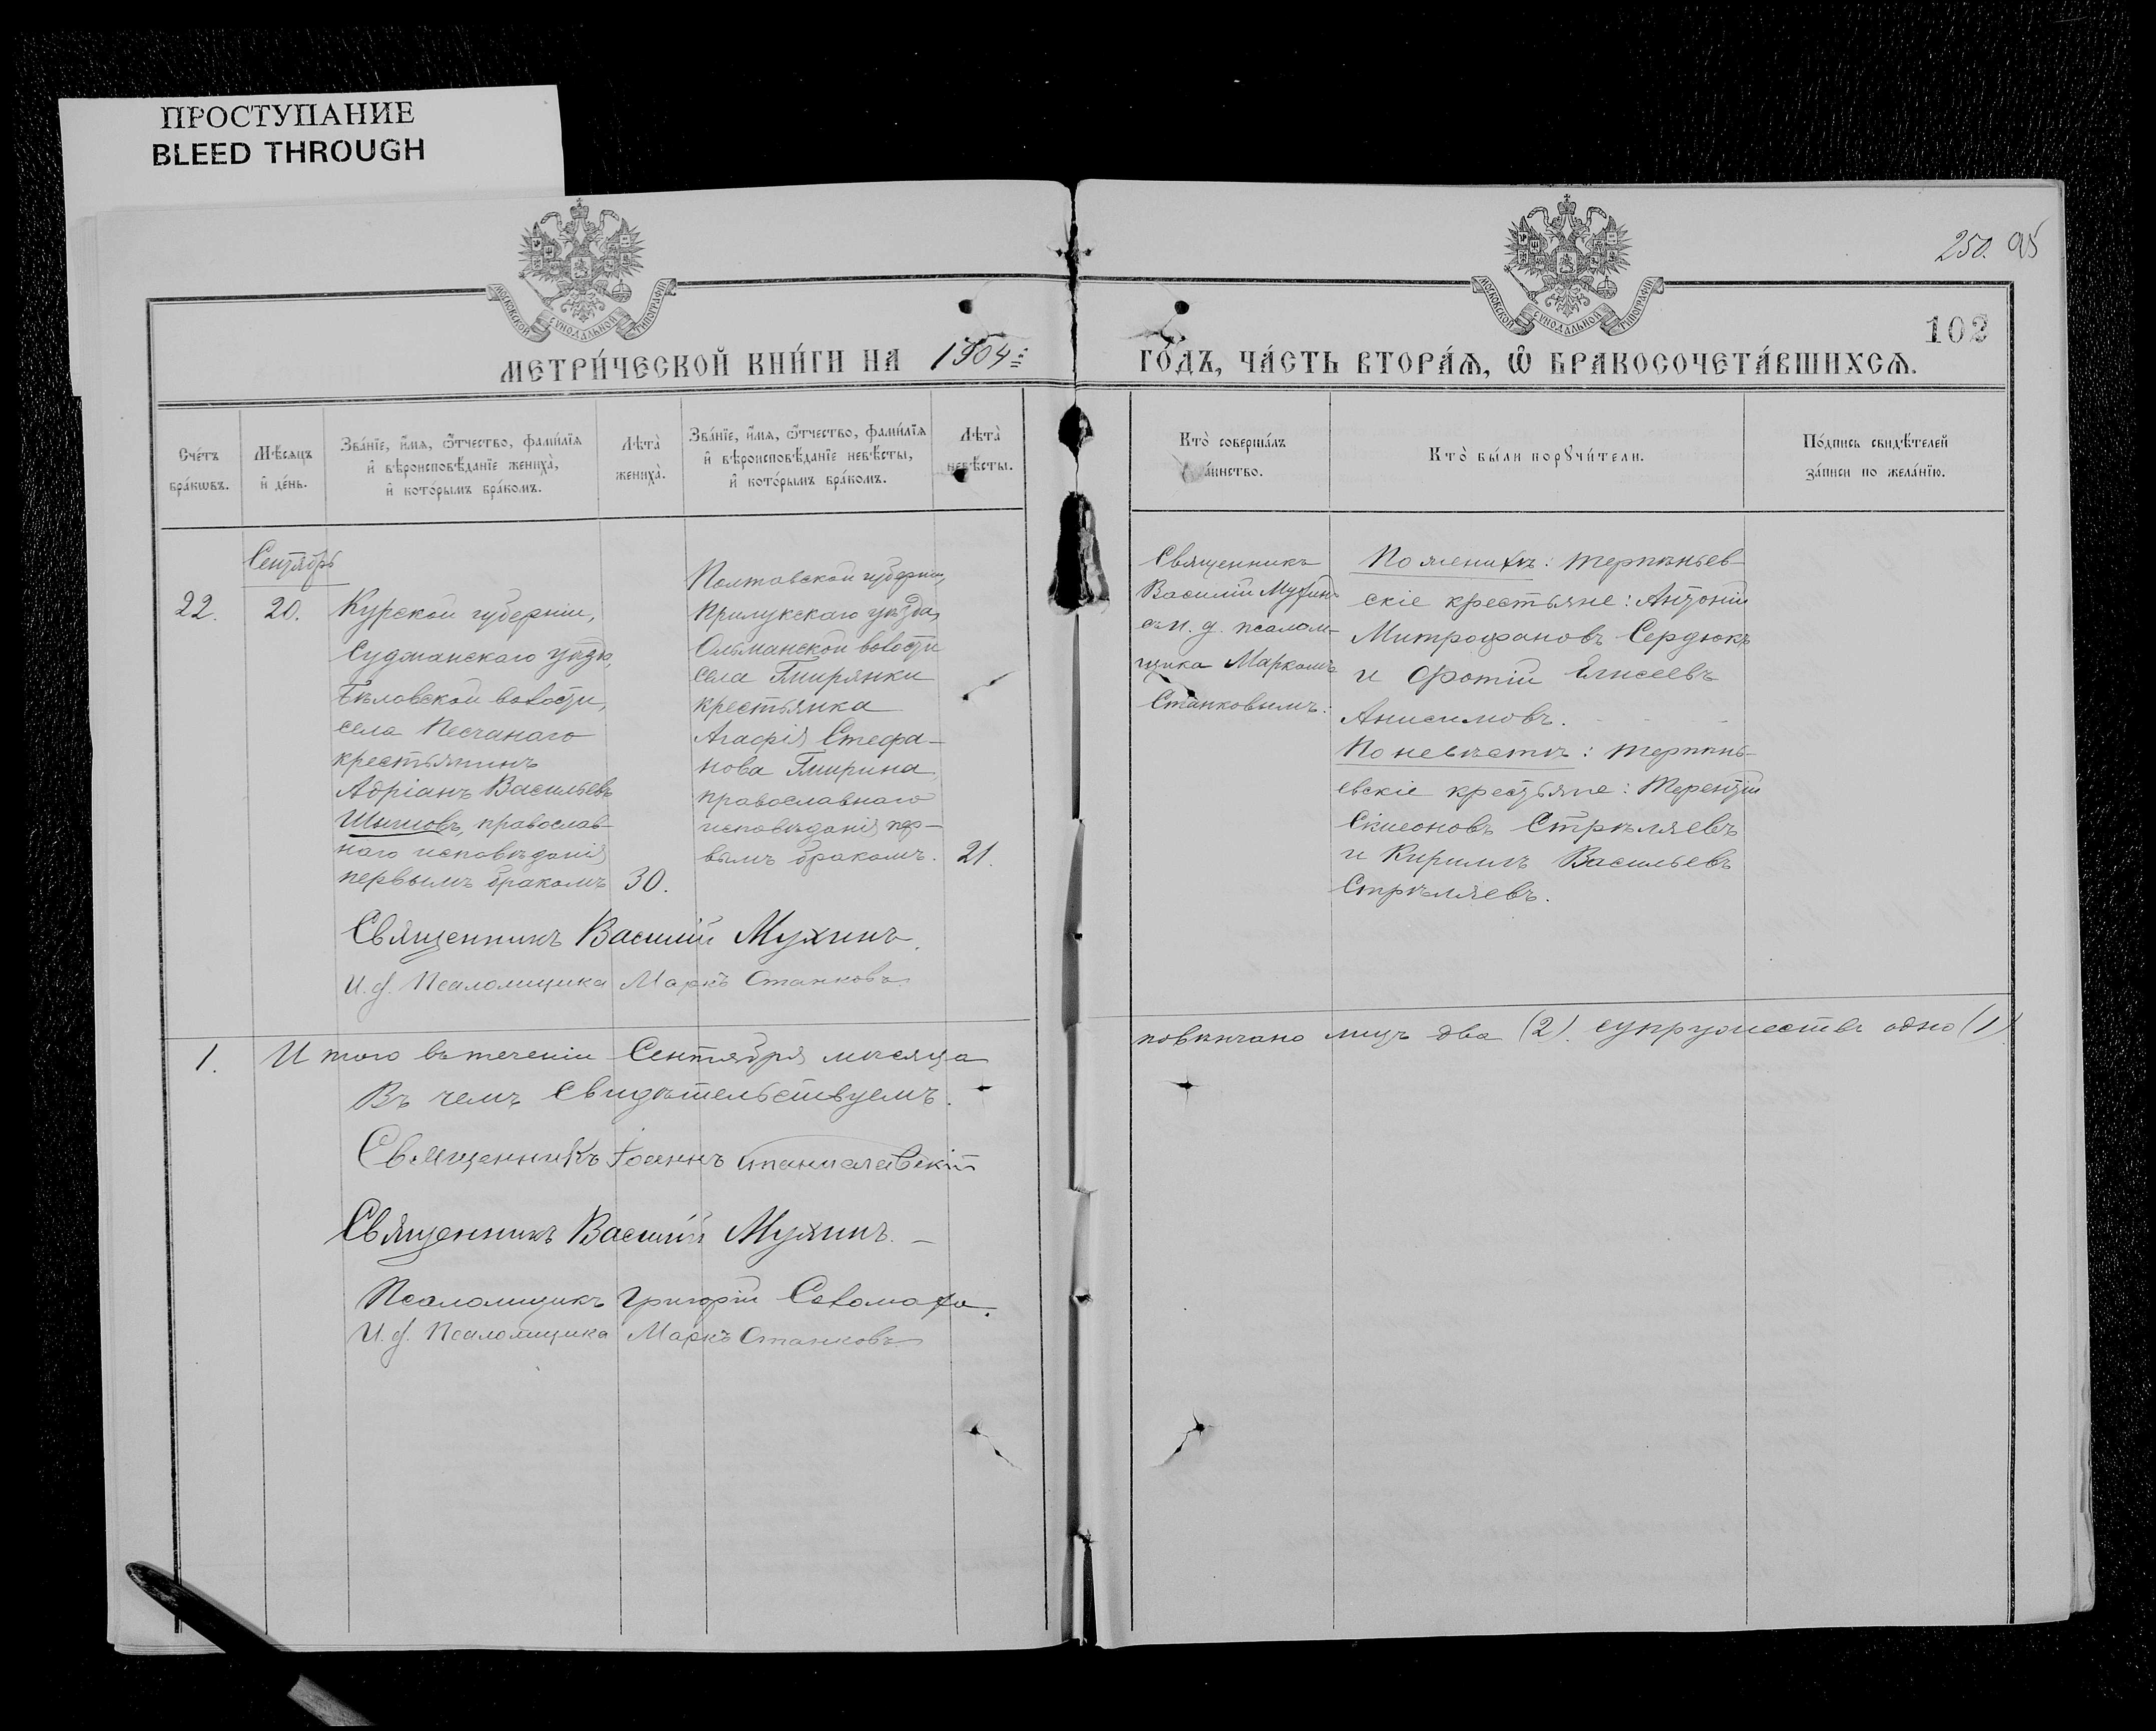 ПРОСТУПАНИЕ
BLEED THROUGH
250. 95
102
МОСКОВСКОЙ СѴНОДАЛЬНОЙ ТИПОГРАФІИ
МОСКОВСКОЙ СѴНОДАЛЬНОЙ ТИПОГРАФІИ
МЕТРИ́ЧЕСКОЙ КНИ́ГИ НА 1904:
ГО́ДЪ, ЧА́СТЬ ВТОРА́Ѧ, Ѡ҆ БРАКОСОЧЕТА́ВШИХСѦ.
Сче́тъ
бра́кѡвъ.
Мѣ́сѧцъ
и҆ де́нь.
Зва́нїе, и҆́мѧ, ѻ҆́тчество, фами́лїѧ
и҆ вѣроисповѣ́данїе жениха̀,
и҆ кото́рымъ бра́комъ.
Лѣта̀
жениха̀.
Зва́нїе, и҆́мѧ, ѻ҆́тчество, фами́лїѧ
и҆ вѣроисповѣ́данїе невѣ́сты,
и҆ кото́рымъ бра́комъ.
Лѣта̀
невѣ́сты.
Кто̀ соверша́лъ
та́инство.
Кто̀ бы́ли порꙋчи́тели.
По́дпись свидѣ́телей
за́писи по жела́нїю.
Сентябрь
22.
20.
Курской губерніи,
Суджанскаго уѣзда,
Бѣловской волости,
села Песчанаго
крестьянинъ
Адріанъ Васильевъ
Шылиовъ, православ-
наго исповѣданія
первымъ бракомъ
30.
Полтавской губерніи,
Прилукскаго уѣзда,
Ольшанской волости
села Гмирянки
крестьянка
Агафія Стефа-
нова Гмирина
православнаго
исповѣданія пер-
вымъ бракомъ.
21.
Священникъ
Василій Мухинъ
съ И. д. псалом-
щика Маркомъ
Станковымъ.
По женихѣ: терпѣньев-
скіе крестьяне: Антоній
Митрофановъ Сердюкъ
и Фотій Елисеевъ
Анисимовъ.
По невѣстѣ: терпѣнь-
евскіе крестьяне: Терентій
Сімеоновъ Стрѣляевъ
и Кириллъ Васильевъ
Стрѣляевъ.
Священникъ Василій Мухинъ.
И. д. Псаломщика Маркъ Станковъ
1.
Итого въ теченіи Сентября мѣсяца
повѣнчано лицъ два (2). супружествъ одно (1)
Въ чемъ Свидѣтельствуемъ.
Священникъ Іоаннъ
Священникъ Василій Мухинъ. –
Псаломщикъ Григорій Соломаха.
И. д. Псаломщика Маркъ Станковъ